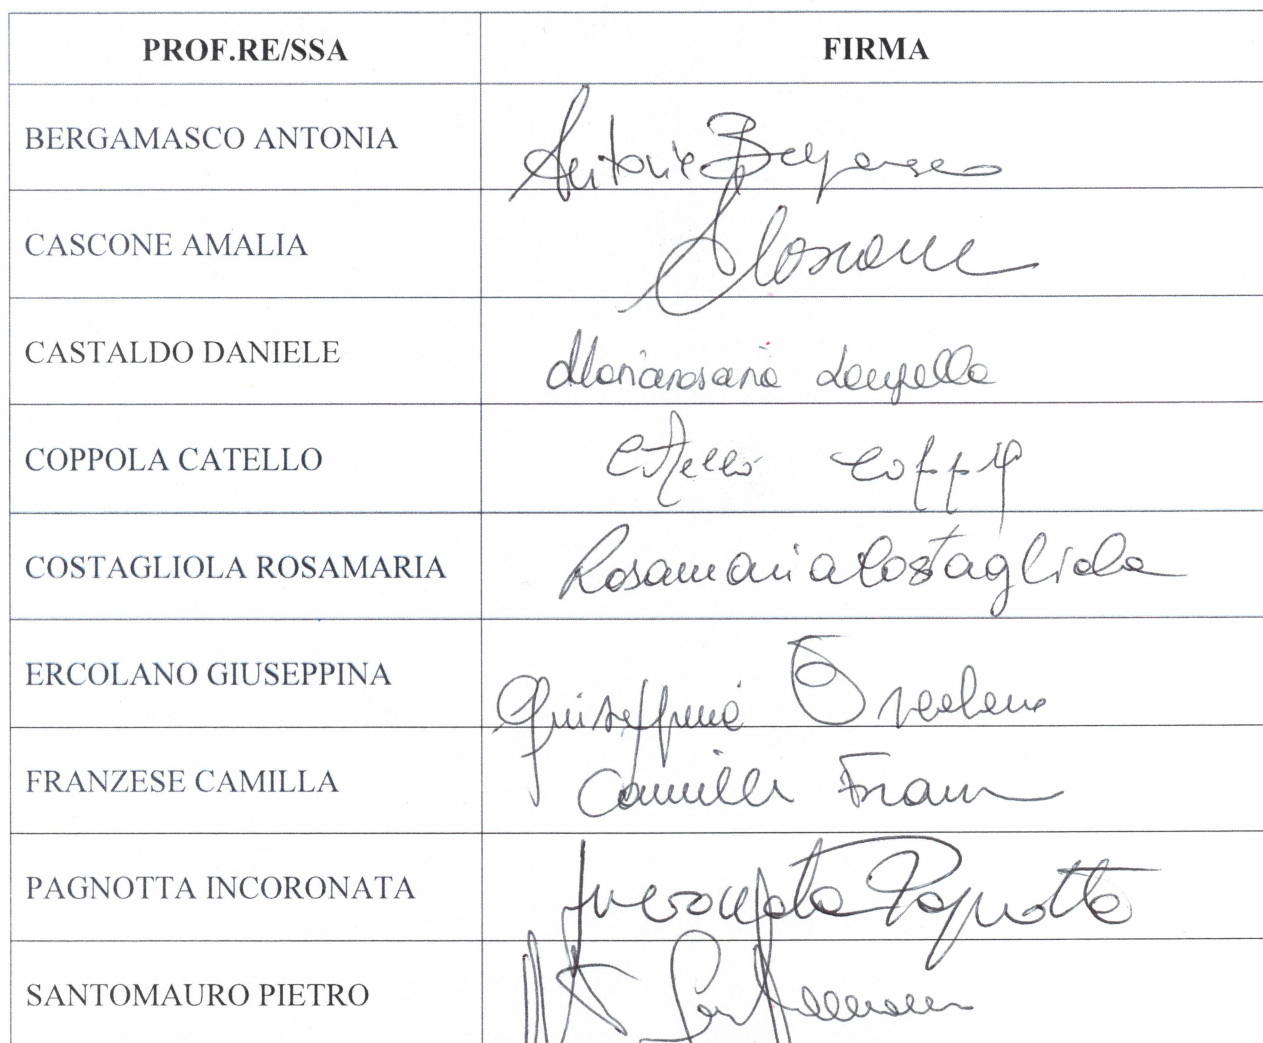 PROF.RE/SSA FIRMA
BERGAMASCO ANTONIA Antonia Bergamasco
CASCONE AMALIA A Cascone
CASTALDO DANIELE Mariarosaria
COPPOLA CATELLO Catello Coppola
COSTAGLIOLA ROSAMARIA Rosamaria Costagliola
ERCOLANO GIUSEPPINA Giuseppina Ercolano
FRANZESE CAMILLA Camilla Franz
PAGNOTTA INCORONATA Incoronata Pagnotta
SANTOMAURO PIETRO